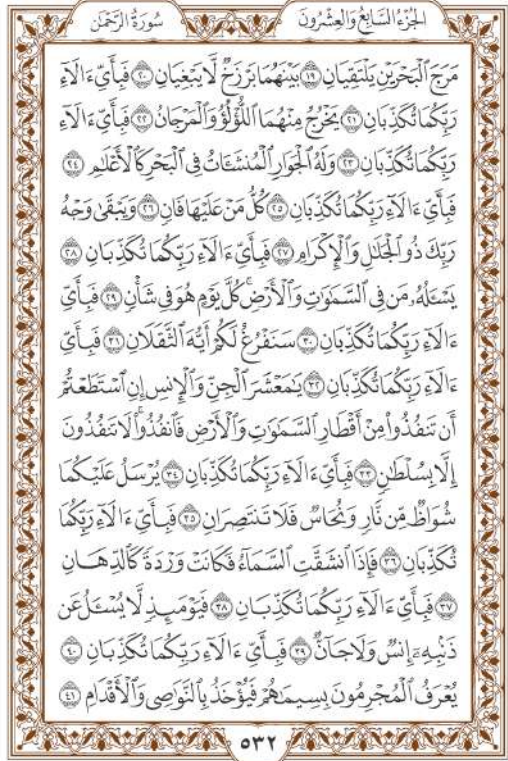 سُورَةُ الرَّحْمَٰن
الجُزْءُ السَّابِعُ وَالعِشْرُونَ
مَرَجَ ٱلْبَحْرَيْنِ يَلْتَقِيَانِ ١٩ بَيْنَهُمَا بَرْزَخٌ لَّا يَبْغِيَانِ ٢٠ فَبِأَىِّ ءَالَآءِ
رَبِّكُمَا تُكَذِّبَانِ ٢١ يَخْرُجُ مِنْهُمَا ٱللُّؤْلُؤُ وَٱلْمَرْجَانُ ٢٢ فَبِأَىِّ ءَالَآءِ
رَبِّكُمَا تُكَذِّبَانِ ٢٣ وَلَهُ ٱلْجَوَارِ ٱلْمُنشَـَٔاتُ فِى ٱلْبَحْرِ كَٱلْأَعْلَٰمِ ٢٤
فَبِأَىِّ ءَالَآءِ رَبِّكُمَا تُكَذِّبَانِ ٢٥ كُلُّ مَنْ عَلَيْهَا فَانٍ ٢٦ وَيَبْقَىٰ وَجْهُ
رَبِّكَ ذُو ٱلْجَلَٰلِ وَٱلْإِكْرَامِ ٢٧ فَبِأَىِّ ءَالَآءِ رَبِّكُمَا تُكَذِّبَانِ ٢٨
يَسْـَٔلُهُۥ مَن فِى ٱلسَّمَٰوَٰتِ وَٱلْأَرْضِ ۚ كُلَّ يَوْمٍ هُوَ فِى شَأْنٍ ٢٩ فَبِأَىِّ
ءَالَآءِ رَبِّكُمَا تُكَذِّبَانِ ٣٠ سَنَفْرُغُ لَكُمْ أَيُّهَ ٱلثَّقَلَانِ ٣١ فَبِأَىِّ
ءَالَآءِ رَبِّكُمَا تُكَذِّبَانِ ٣٢ يَٰمَعْشَرَ ٱلْجِنِّ وَٱلْإِنسِ إِنِ ٱسْتَطَعْتُمْ
أَن تَنفُذُوا۟ مِنْ أَقْطَارِ ٱلسَّمَٰوَٰتِ وَٱلْأَرْضِ فَٱنفُذُوا۟ ۚ لَا تَنفُذُونَ
إِلَّا بِسُلْطَٰنٍ ٣٣ فَبِأَىِّ ءَالَآءِ رَبِّكُمَا تُكَذِّبَانِ ٣٤ يُرْسَلُ عَلَيْكُمَا
شُوَاظٌ مِّن نَّارٍ وَنُحَاسٌ فَلَا تَنتَصِرَانِ ٣٥ فَبِأَىِّ ءَالَآءِ رَبِّكُمَا
تُكَذِّبَانِ ٣٦ فَإِذَا ٱنشَقَّتِ ٱلسَّمَآءُ فَكَانَتْ وَرْدَةً كَٱلدِّهَانِ
٣٧ فَبِأَىِّ ءَالَآءِ رَبِّكُمَا تُكَذِّبَانِ ٣٨ فَيَوْمَئِذٍ لَّا يُسْـَٔلُ عَن
ذَنۢبِهِۦٓ إِنسٌ وَلَا جَآنٌّ ٣٩ فَبِأَىِّ ءَالَآءِ رَبِّكُمَا تُكَذِّبَانِ ٤٠
يُعْرَفُ ٱلْمُجْرِمُونَ بِسِيمَٰهُمْ فَيُؤْخَذُ بِٱلنَّوَٰصِى وَٱلْأَقْدَامِ ٤١
٥٣٢